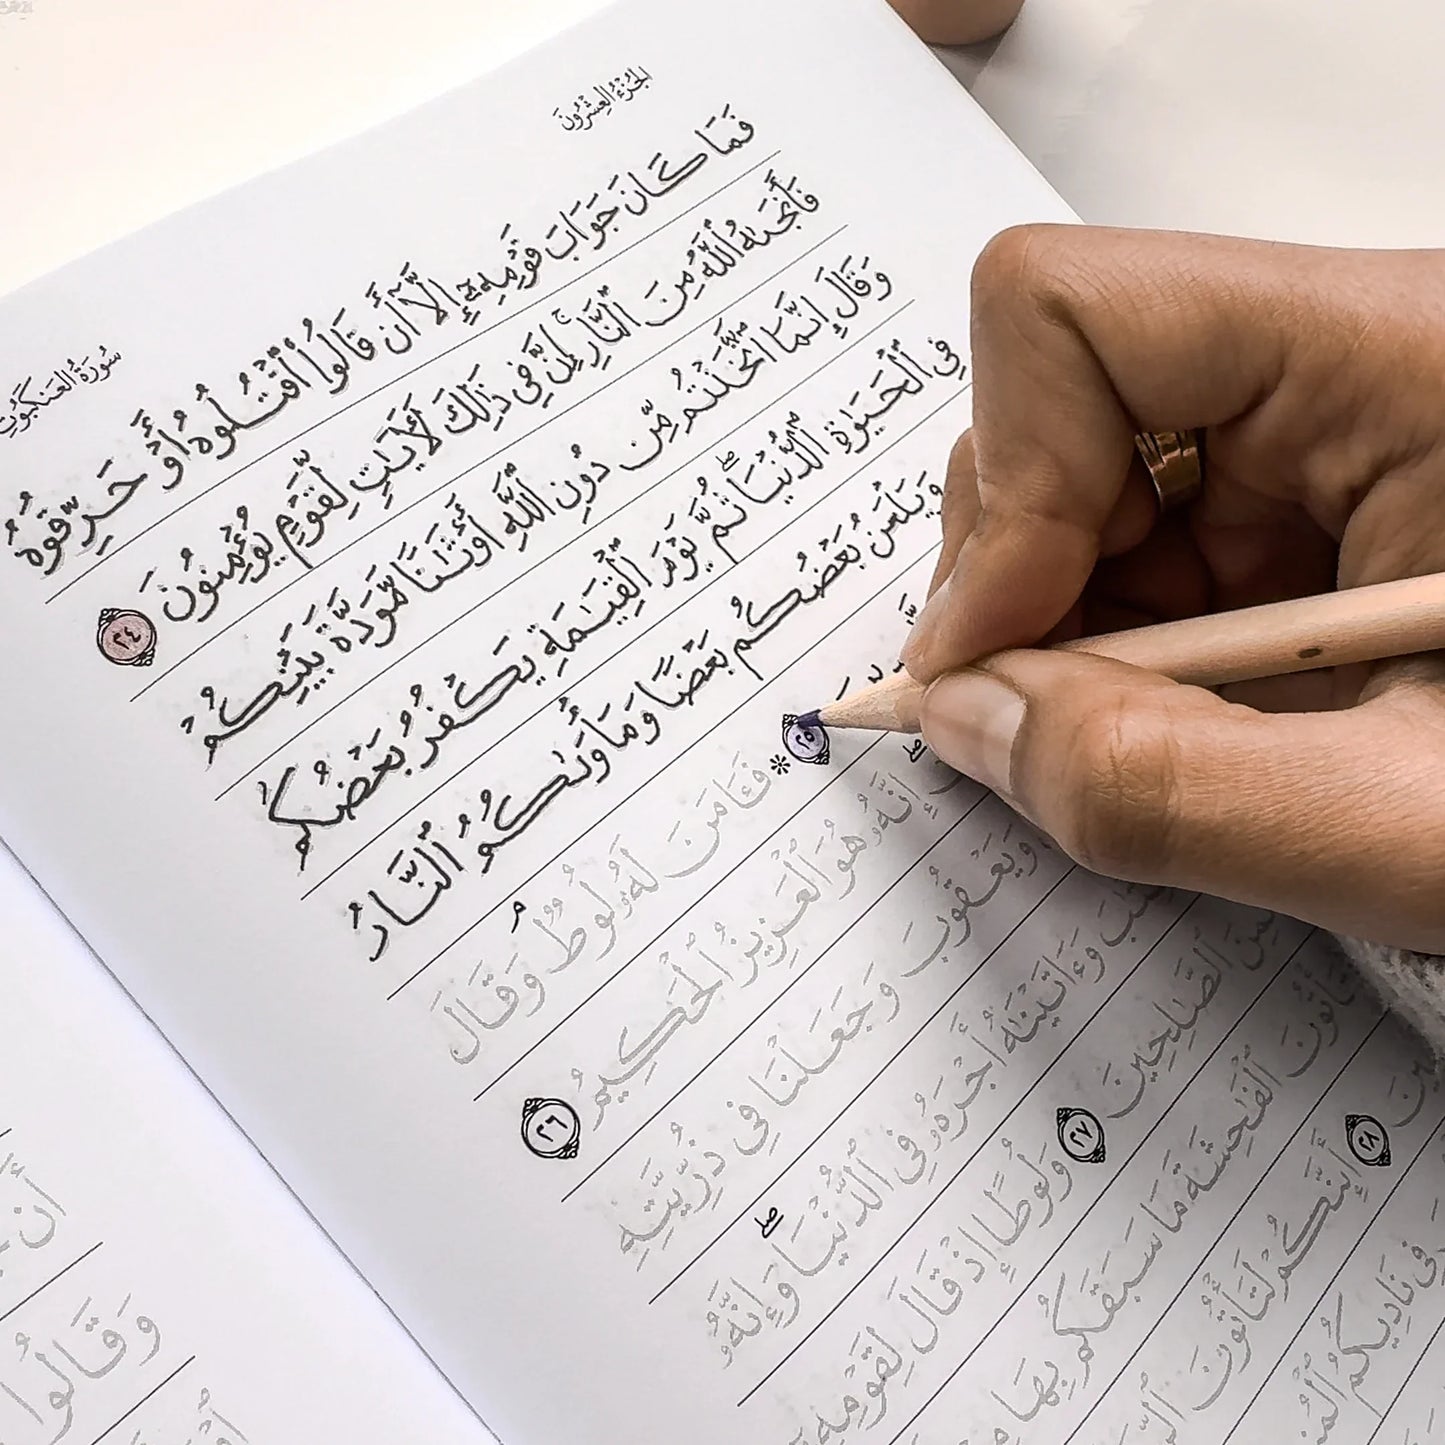 الجُزْءُ العِشْرُونَ
سُورَةُ العَنكَبُوتِ
فَمَا كَانَ جَوَابَ قَوْمِهِۦٓ إِلَّآ أَن قَالُوا۟ ٱقْتُلُوهُ أَوْ حَرِّقُوهُ
فَأَنجَىٰهُ ٱللَّهُ مِنَ ٱلنَّارِ ۚ إِنَّ فِي ذَٰلِكَ لَآيَٰتٍ لِّقَوْمٍ يُؤْمِنُونَ ٢٤
وَقَالَ إِنَّمَا ٱتَّخَذْتُم مِّن دُونِ ٱللَّهِ أَوْثَٰنًا مَّوَدَّةَ بَيْنِكُمْ
فِي ٱلْحَيَوٰةِ ٱلدُّنْيَا ۖ ثُمَّ يَوْمَ ٱلْقِيَٰمَةِ يَكْفُرُ بَعْضُكُم
وَيَلْعَنُ بَعْضُكُم بَعْضًا وَمَأْوَىٰكُمُ ٱلنَّارُ
٢٥ * فَـَٔامَنَ لَهُۥ لُوطٌ ۘ وَقَالَ
إِنَّهُۥ هُوَ ٱلْعَزِيزُ ٱلْحَكِيمُ ٢٦
وَيَعْقُوبَ وَجَعَلْنَا فِي ذُرِّيَّتِهِ
وَءَاتَيْنَٰهُ أَجْرَهُۥ فِي ٱلدُّنْيَا ۖ وَإِنَّهُۥ
ٱلصَّٰلِحِينَ ٢٧ وَلُوطًا إِذْ قَالَ لِقَوْمِهِۦٓ
لَتَأْتُونَ ٱلْفَٰحِشَةَ مَا سَبَقَكُم بِهَا
٢٨ أَئِنَّكُمْ لَتَأْتُونَ
فِي نَادِيكُمُ
أَن
وَقَالُوا